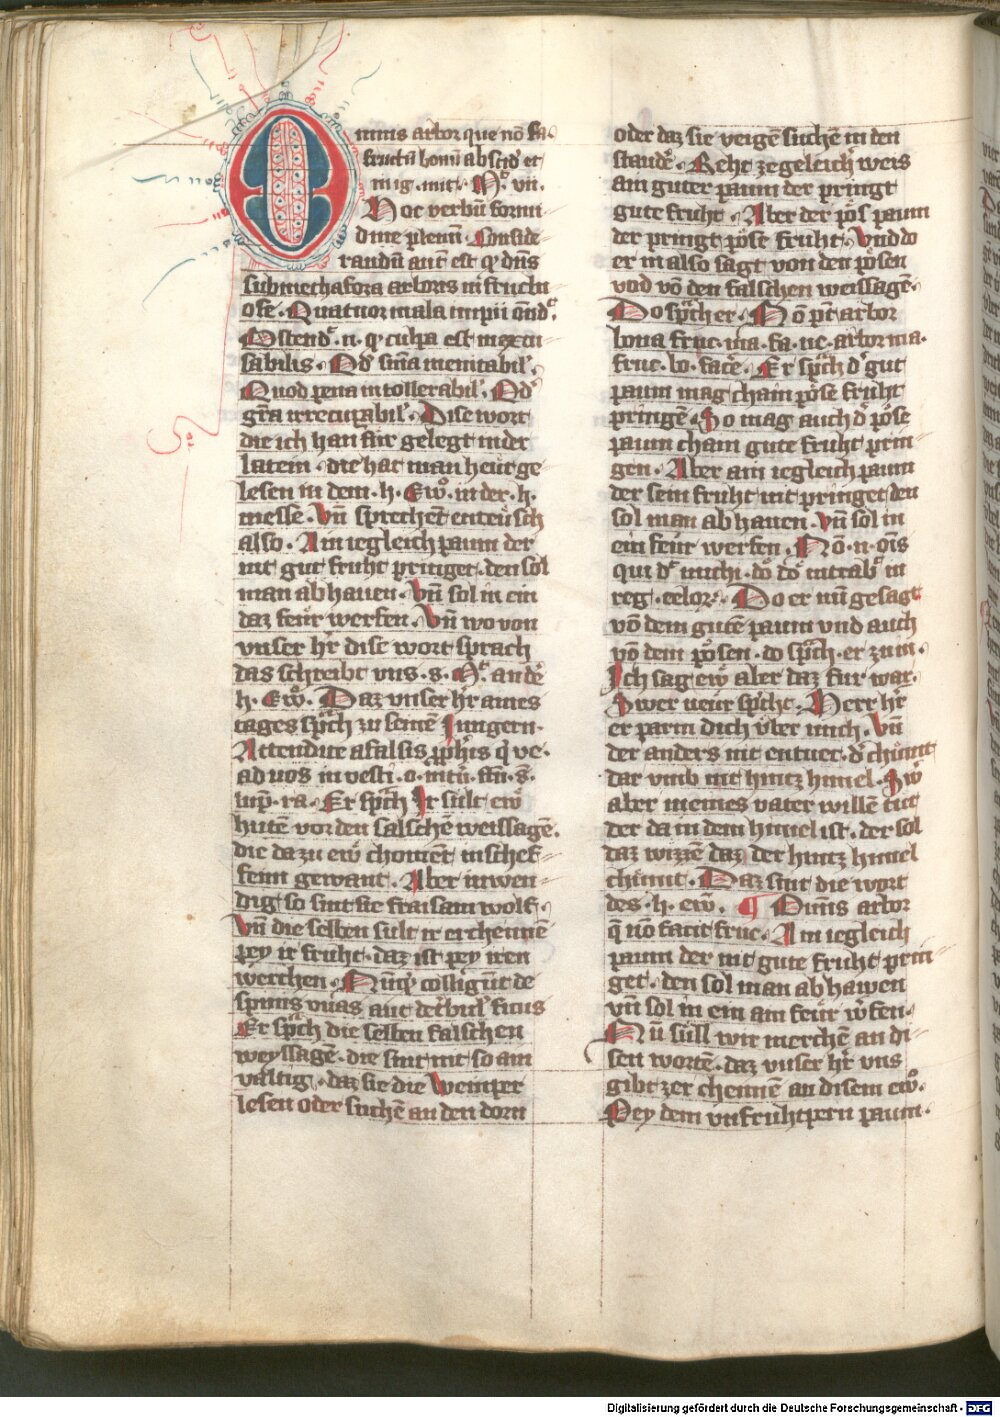 Omnis arbor que nō fa-
fructū bonū abscid' et
in ig. mit. Mͭ. vii.
Hoc verbū formi
dīne plenū. Conside-
randū aut est ꝙ dn̄s
sub methafora arboris in fructu
ose. Quatuor mala impii on̄d'.
Ostend'. n. ꝙ culpa est inexcu
sabilis. Qd' sn̄ia ineuitabil'.
Quod pena intollerabil'. Qd'
gr̄a irrecupabil'. Dise wort
die ich han für gelegt in der
latein. die hat man heut ge
lesen in dem. h. Ew̄. in der. h.
messe. Vn̄ sprechēt enteusch
also. Ain iegleich paum der
nit gut fruht pringet. den sol
man ab hauen. Vn̄ sol in ein
daz feur werfen. Vn̄ wo von
vnser hr̄ dise wort sprach
das schreibt vns. s. Mͭ. an dē
h. Ew̄. Daz vnser hr̄ aines
tages sp̄ch zu seinē Jungern.
Attendite a falsis ꝓphīs q̄ ve-
ad uos in vesti. o. int'ū. s̄n. s̄.
lup. ra. Er sp̄ch Ir sult ew̄
hutē vor den falschē weissagē.
die da zu ew̄ choment in schef-
feim gewant. Aber inwen-
dig so sint sie fraisam wolf.
Vn̄ die selben sult ir erchennē
pey ir fruht. daz ist pey iren
werchen. Nūqͥ colligūt de
spinis vuas aut de t'bul' ficus
Er sp̄ch die selben falschen
weyssagē. die sint nit so ain
valtig. daz sie die Weinper
lesen oder suchē an den dorn
oder daz sie veigē suchē in den
staudē. Reht ze geleich' weis
ain guter paum der pringt
gute fruht. Aber der pos paum
der pringt pöse fruht. Vnd do
er in also sagt von den pösen
vnd vō den falschen weissagē.
Do sp̄ch er. Nō pt arbor
bona fruc. ma. fa. nc. arbor ma.
fruc. bo. facē. Er sp̄ch d' gut
paum mag chain pöse fruht
pringē. So mag auch d' pöse
paum cham gute fruht prin
gen. Aber ain iegleich paum
der sein fruht nit pringet den
sol man ab hauen. vn̄ sol in
ein feur werfen. Nō. n. oīs
qui d' michi. dō dō intrab' in
reg. celor. Do er nu gesagt
vō dem gutē paum vnd auch
vō dem pösen. do sp̄ch. er zu in.
Ich sag ew̄ aber daz fur war.
Swer neur sp̄cht. Herr hr̄
er parm dich vber mich. Vn̄
der anders nit entuet. d' chūmt
dar vmb nit hintz himel. Sw'
aber meines vater willē tut
der da in dem himel ist. der sol
daz wizzē daz der hintz himel
chumt. Daz sint die wort
des. h. ew̄. ¶ Omīs arbor
q̄ nō facit fruc. Ain iegleich
paum der nit gute fruht prin-
get. den sol man ab hawen
vn̄ sol in ein am feur w'fen.
Nu süll wir merchē an di-
sen wortē. daz vnser hr̄ vns
gibt zer chennē an disem ew̄.
Pey dem vnfruhtpern paum.
Digitalisierung gefördert durch die Deutsche Forschungsgemeinschaft - DFG